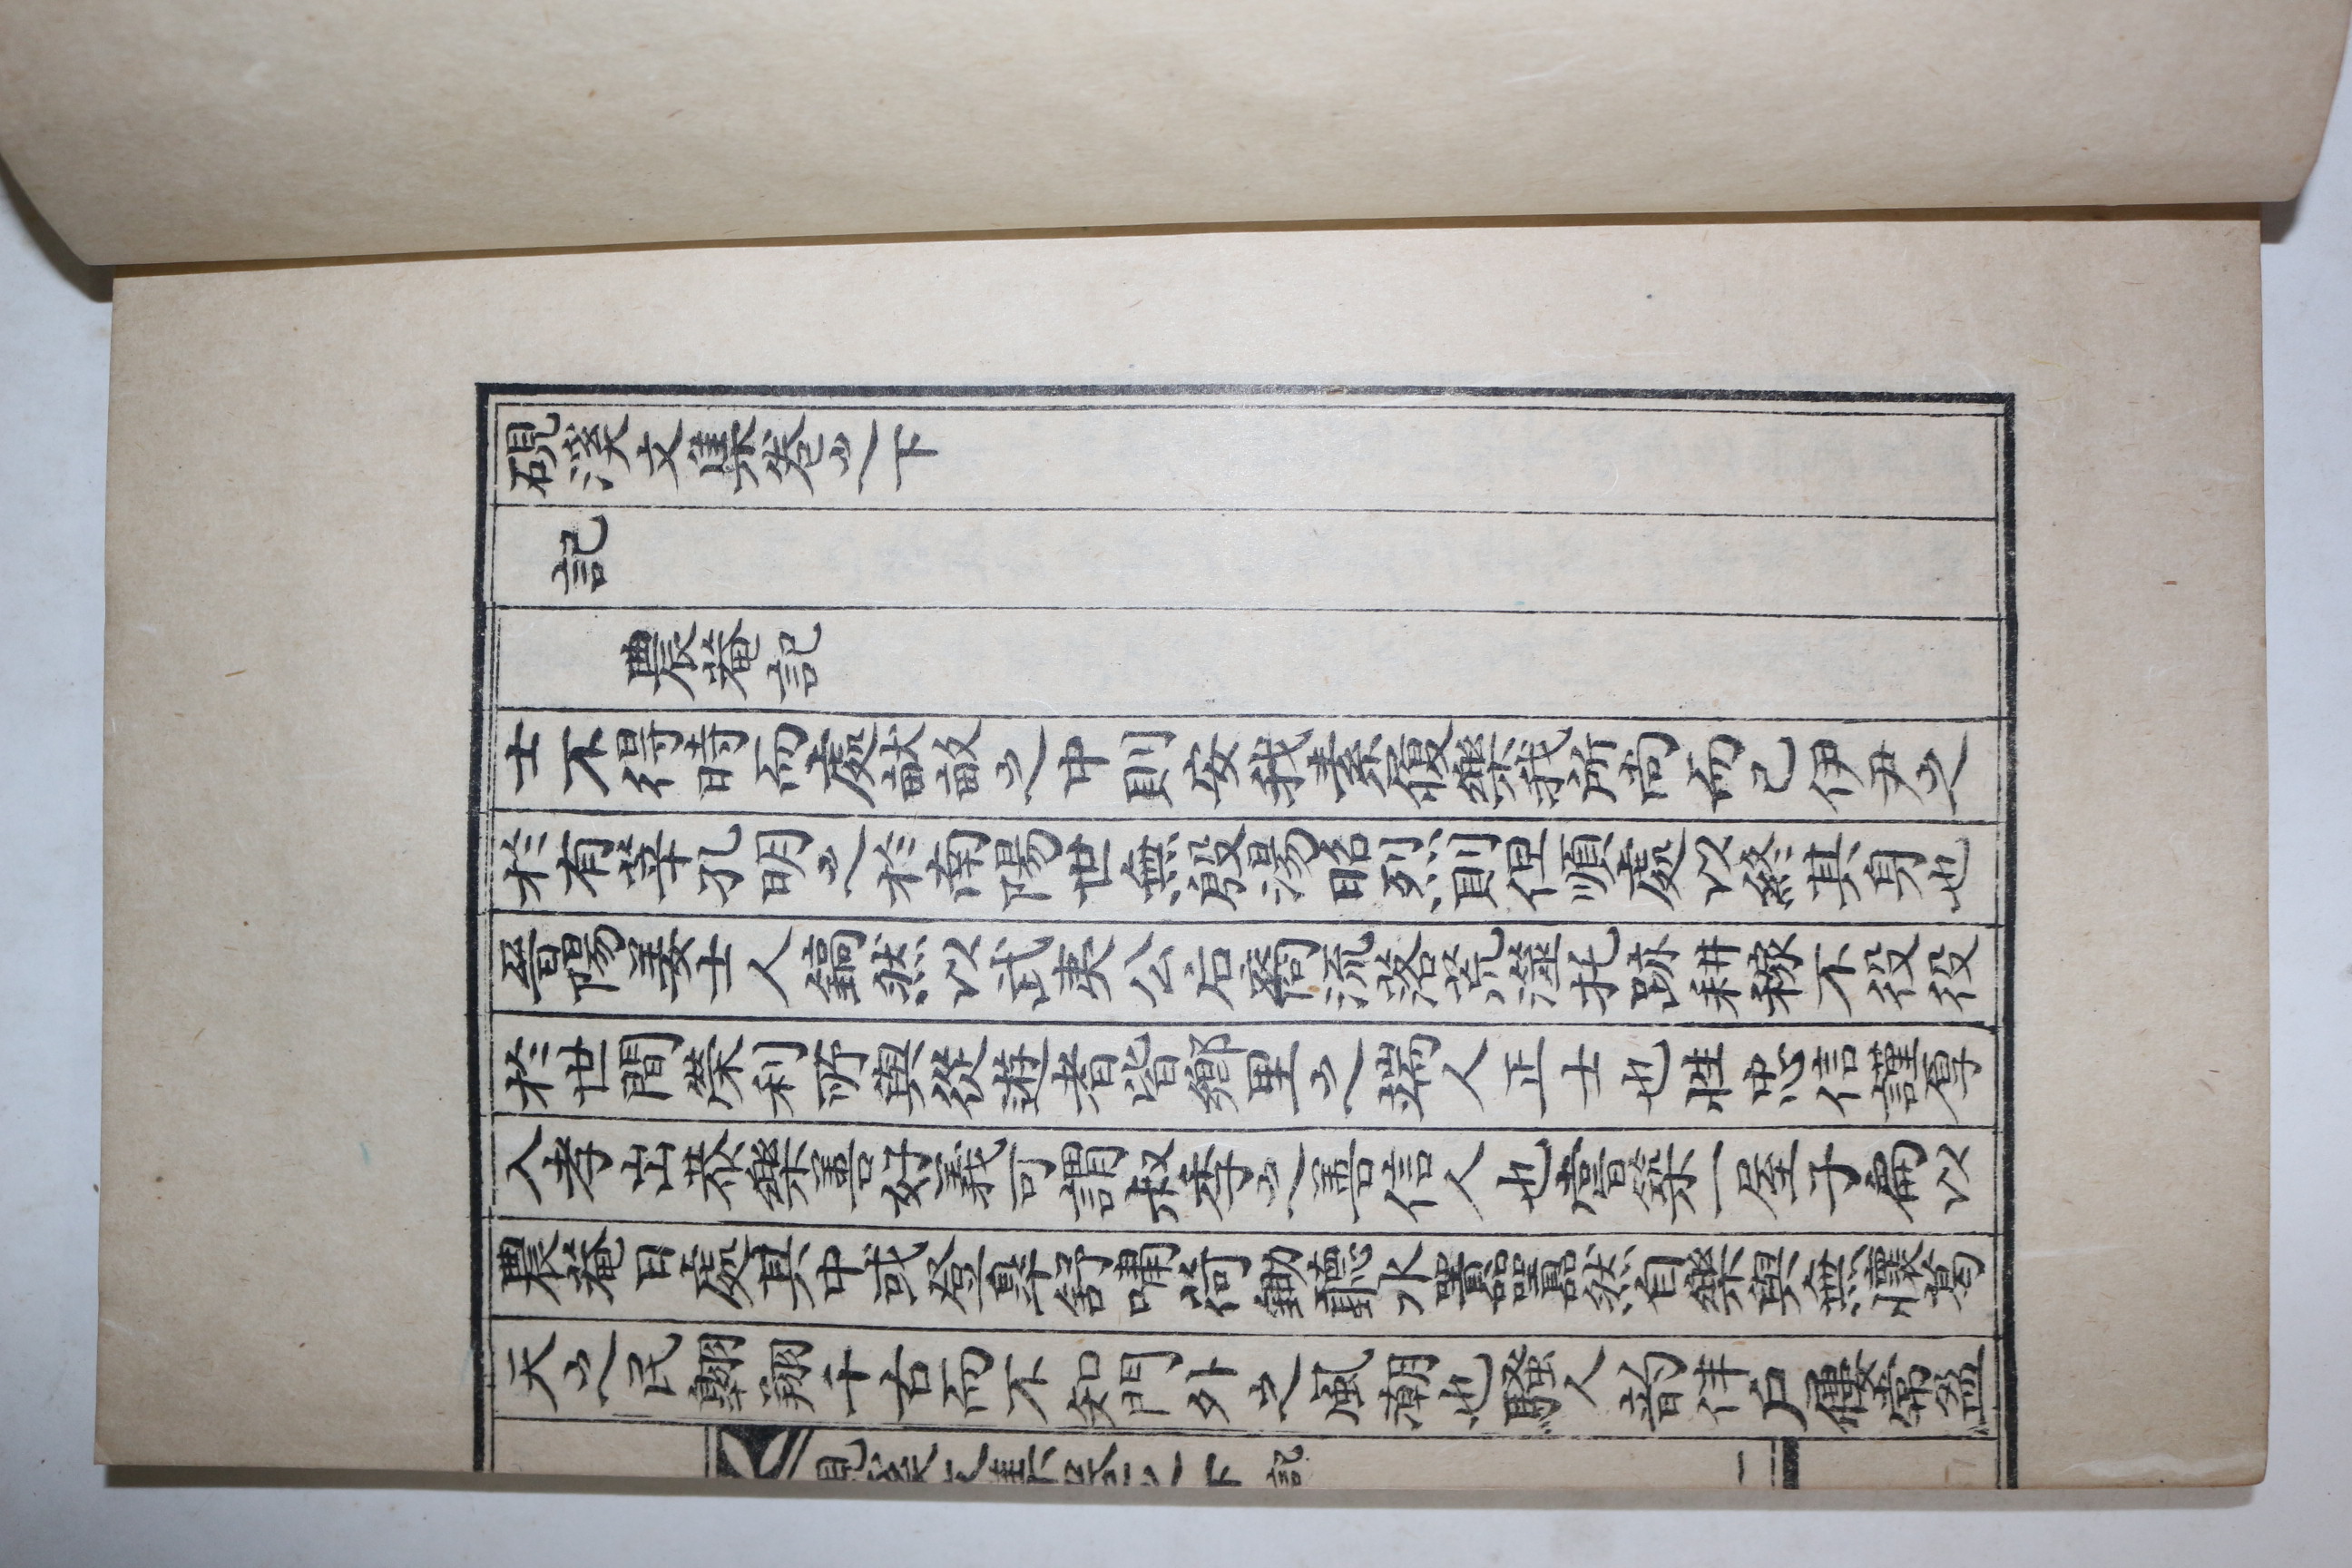 硯溪文集卷之下
記
農菴記
士不得時而處畎畝之中則安我素履樂我所尚而已伊尹之
於有莘孔明之於南陽世無殷湯昭烈則但順處以終其身也
晉陽姜士人鎬然以武夷公后裔流落荒澨托跡耕稼不役役
於世間榮利所與從遊者皆鄉里之端人正士也性忠信謹厚
入孝出恭樂善好義可謂叔季之善信人也嘗築一屋子扁以
農菴日處其中或登皐舒嘯荷鋤聽水囂囂然自樂與無懷葛
天之民翺翔千古而不知門外之風潮也騷人韵伴戶屨常盈
硯溪文集卷之下 記 一